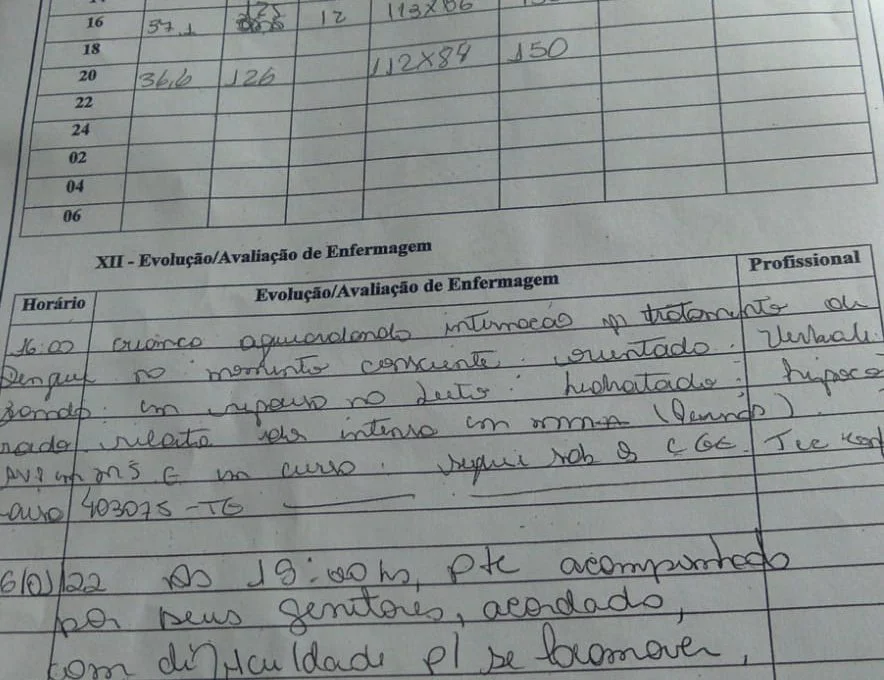 16 37,1 123 12 113x86
18
20 36,6 126 112x84 150
22
24
02
04
06
XII - Evolução/Avaliação de Enfermagem
Horário Evolução/Avaliação de Enfermagem Profissional
16:00 criança aguardando internação p/ tratamento de
Dengue no momento consciente. orientado. Verbali
zando. em repouso no leito. hidratado. hipoco
rado. relato dor intensa em (pernas).
AVP em MSE em curso. segue sob CGE. Tec
403075 - TE
6/01/22 Às 19:00hs, pte acompanhado
por seus genitores, acordado,
com dificuldade p/ se locomover,